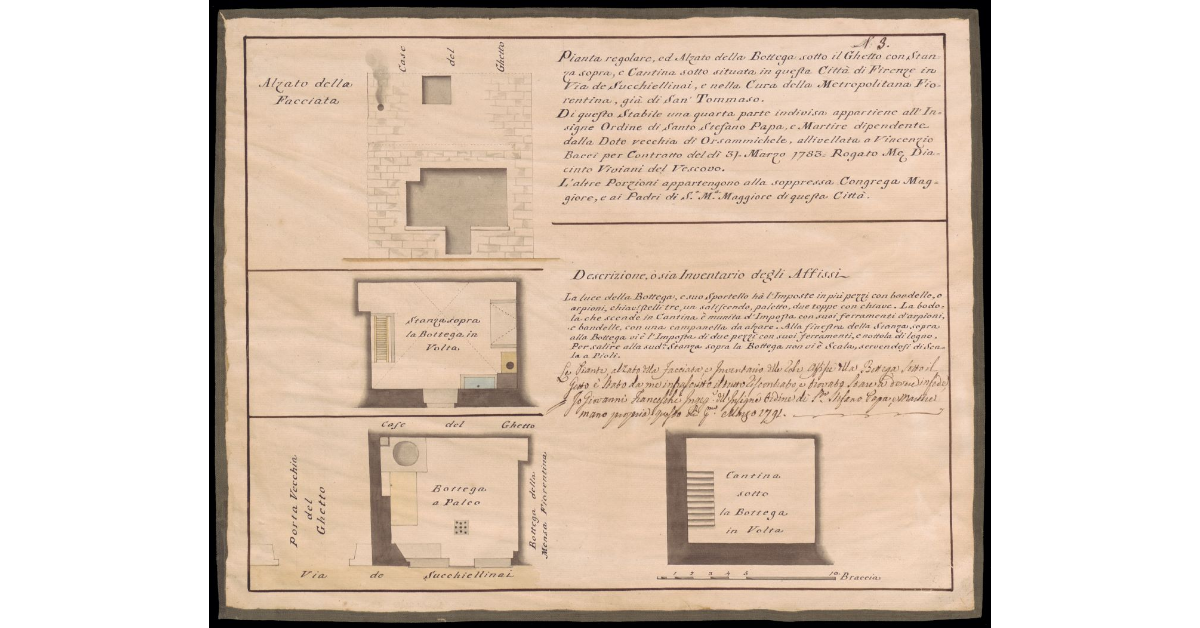 N. 3.
Alzato della
Facciata
Case del Ghetto
Pianta regolare, ed Alzato della Bottega sotto il Ghetto con Stan-
za sopra, e Cantina sotto situata in questa Città di Firenze in
Via de Succhiellinai, e nella Cura della Metropolitana Fio-
rentina, già di San Tommaso.
Di questo Stabile una quarta parte indivisa appartiene all'In-
signe Ordine di Santo Stefano Papa, e Martire dipendente
dalla Dote vecchia di Orsammichele, allivellata a Vincenzio
Bacci per Contratto del dì 31. Marzo 1783. Rogato Mr. Dia-
cinto Viviani del Vescovo.
L'altre Porzioni appartengono alla soppressa Congrega Mag-
giore, e ai Padri di S.a M.a Maggiore di questa Città.
Descrizione, o sia Inventario degli Affissi
La luce della Bottega, e suo Sportello hà l'Imposte in più pezzi con bandelle, e
arpioni, chiavistelli tre, un saliscendo, paletto, due toppe con chiave. La bodo-
la che scende in Cantina è munita d'Imposta con suoi ferramenti d'arpioni,
e bandelle, con una campanella da alzare. Alla finestra della Stanza sopra
alla Bottega vi è l'Imposta di due pezzi con suoi ferramenti, e nottola di legno.
Per salire alla sud.a Stanza sopra la Bottega non vi è Scala, servendosi di Sca-
la a Pioli.
La Pianta, alzato della Facciata, e Inventario delle Robe Affisse della Bottega sotto il
Getto è stato da me infrascritto
Io Giovanni Franceschi Ingeg. dell'Insigne Ordine di S.to Stefano Papa, e Martire
mano propria questo dì p.mo Marzo 1791.
Stanza sopra
la Bottega in
Volta
Case del Ghetto
Porta Vecchia
del
Ghetto
Bottega
a Palco
Bottega della
Mensa Fiorentina
Via de Succhiellinai
Cantina
sotto
la Bottega
in Volta
1 2 3 4 5 10 Braccia